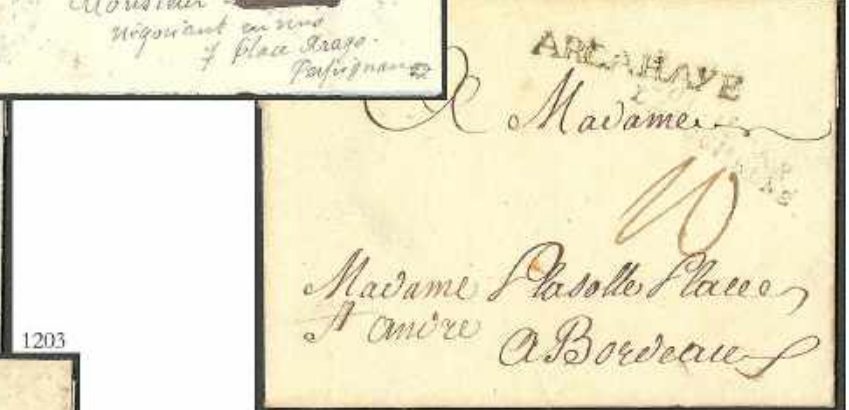 Monsieur
négociant en vins
7 place Arago.
Perpignan
ARCAHAYE
A Madame
10
Madame Lasolle Place
St andre
A Bordeaux
1203